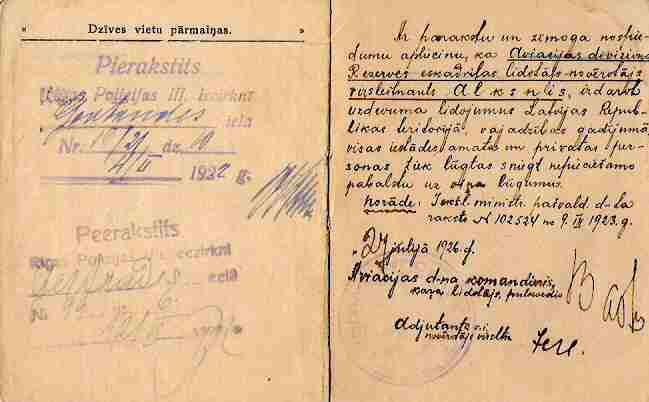 Dzīves vietu pārmaiņas.
Pierakstīts
Rīgas Policijas III. iecirknī
ielā
Nr. dz. 10
1922 g.
Peerakstīts
Rīgas Polizijas eezirknī
eelā
Ar parakstu un zemoga nospie-
dumu apliecinu, ka Aviacijas diviziona
Rezerves eskadriļas lidotājs-novērotājs
virsleitnants Alksnis, izdarot
uzdevuma lidojumus Latvijas Repub-
likas teritorijā, vajadzības gadījumā,
visas iestādes amata un privatas per-
sonas tiek lūgtas sniegt nepieciešamo
pabalstu uz viņa lūgumu.
Norāde: Iekšl. ministr. pašvald. d-ta
raksts N 102524 no 9. III 1923. g.
„27 julijā 1926. g.
Aviacijas d-na komandieris,
kaŗa lidotājs, pulkvedis
Adjutanta v. i.
novērotājs virsltn.